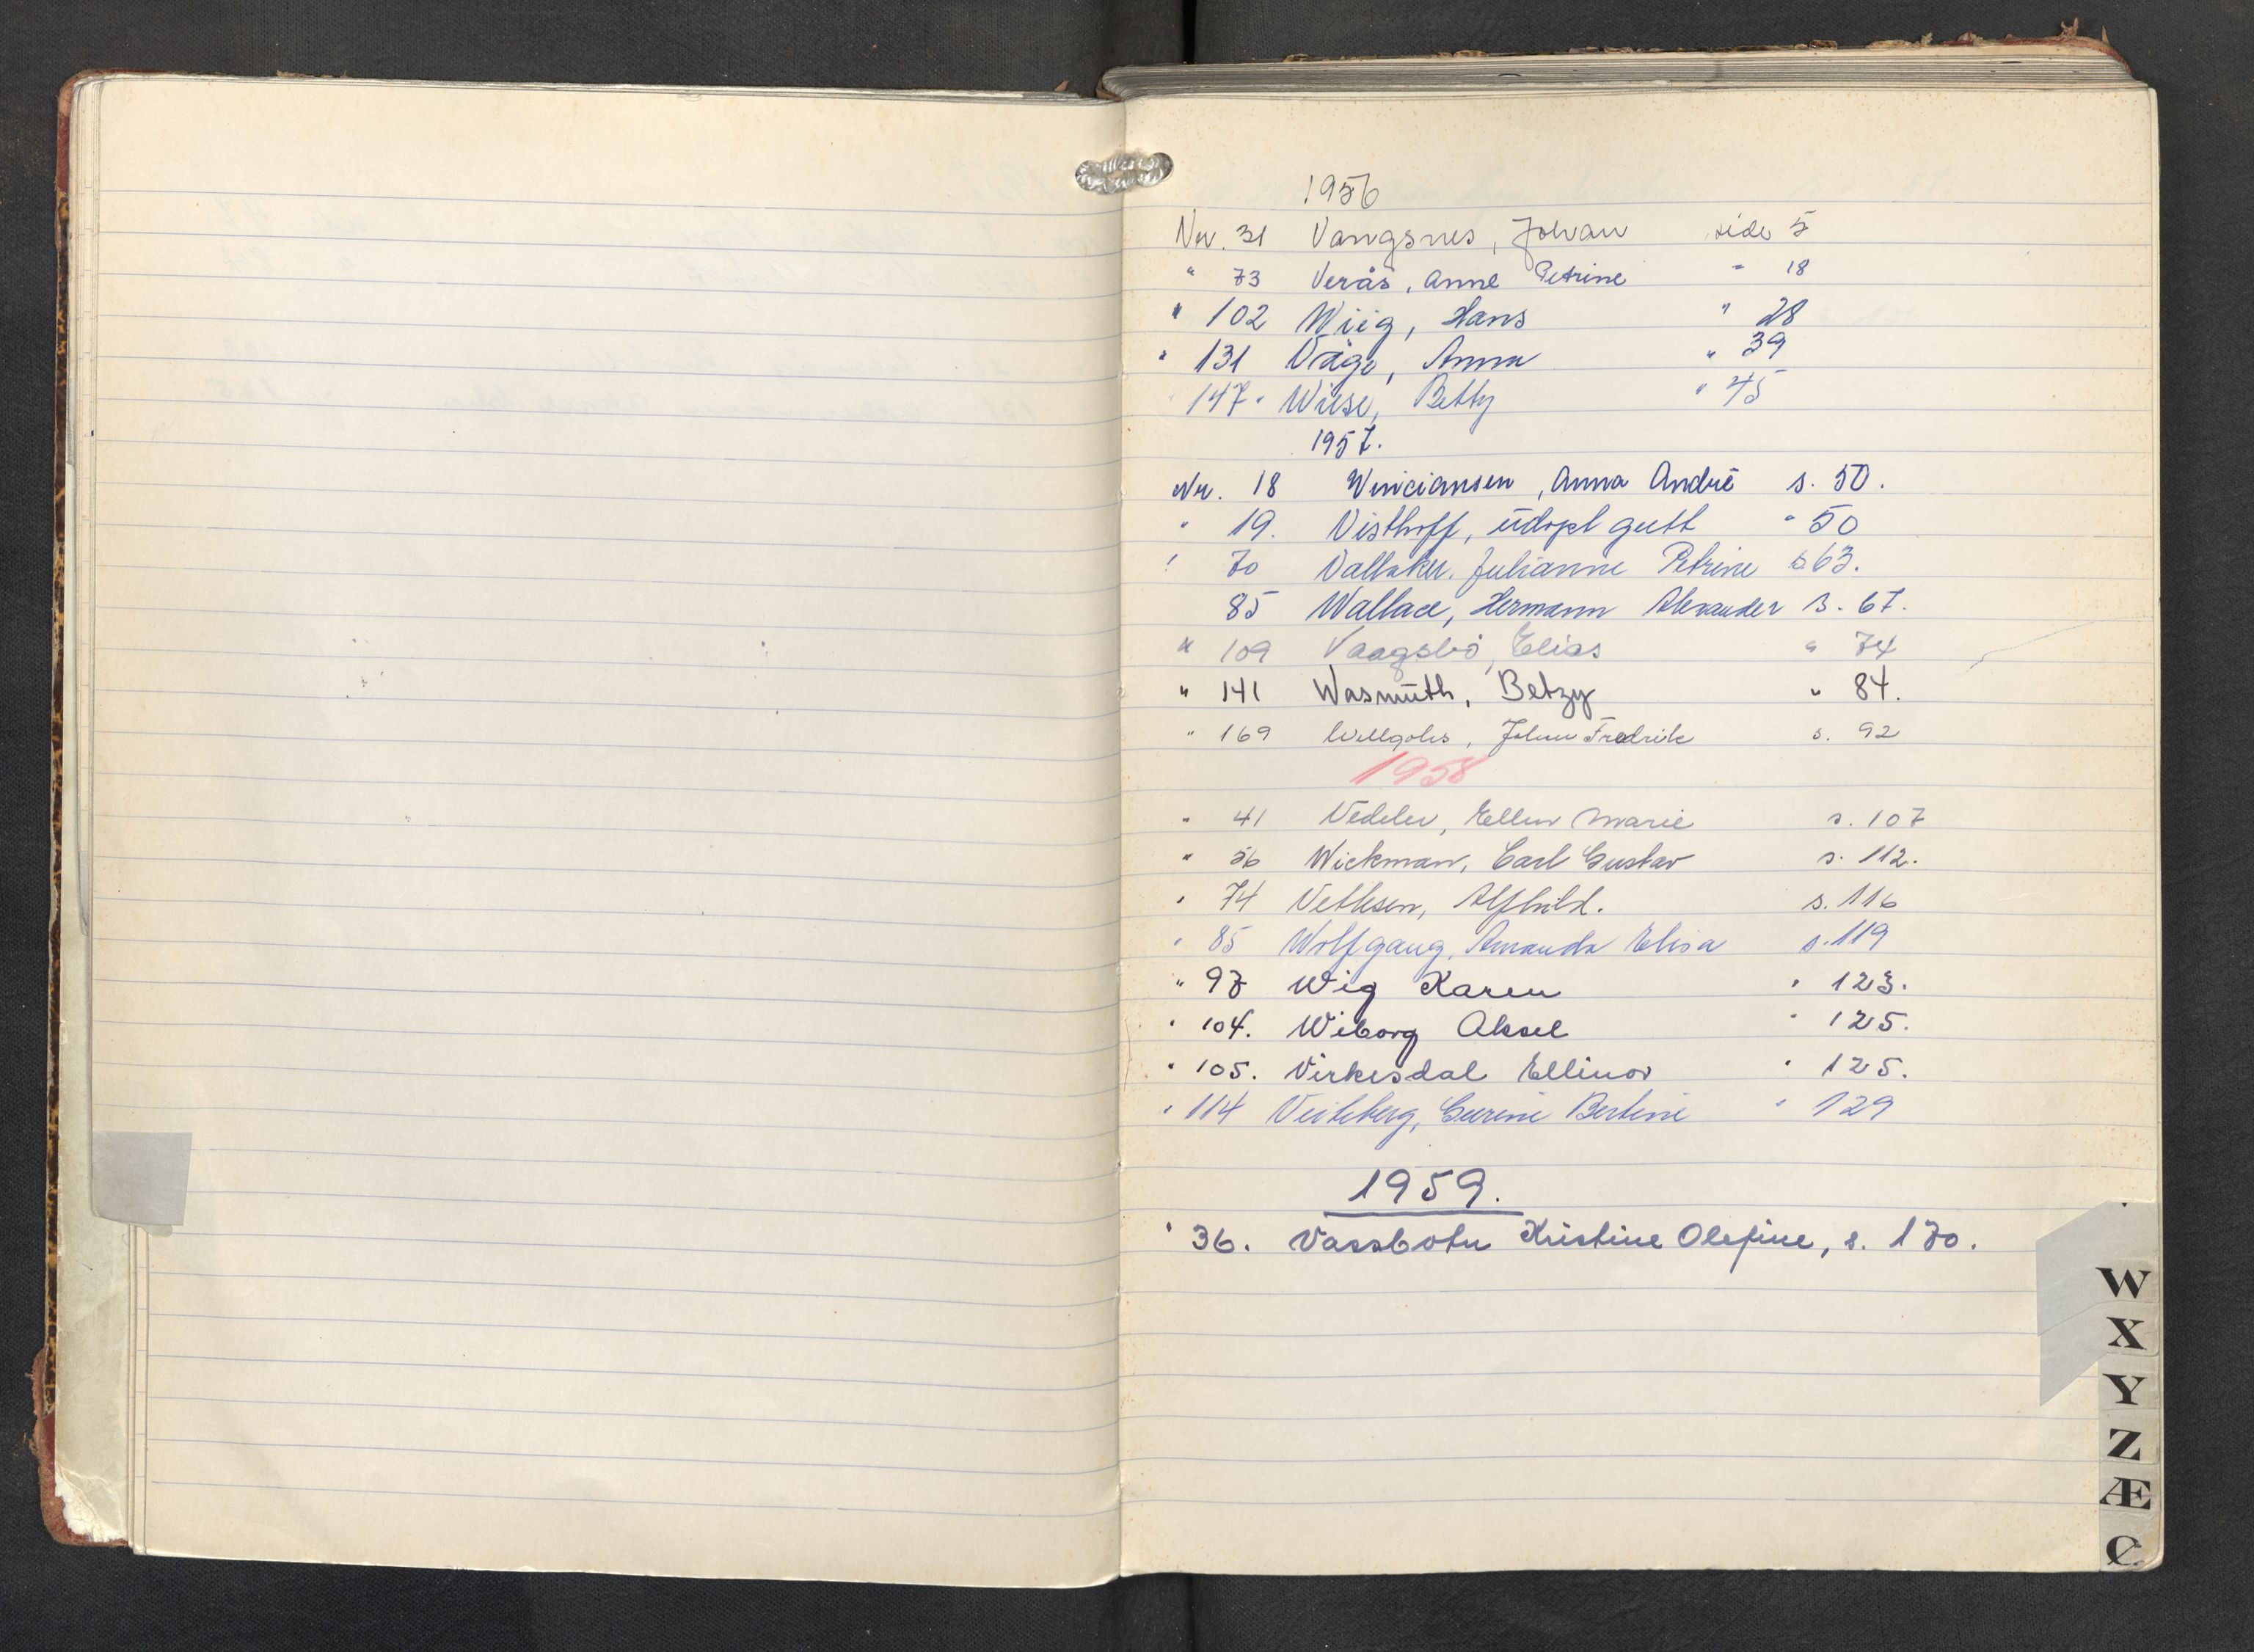 1956
Nr. 31 Vangsnes, Johan side 5
" 73 Verås, Anne Petrine " 18
" 102 Wiig, Hans " 28
" 131 Våge, Anna " 39
147 " Wiese, Betty " 45
1957.
Nr. 18 Winciansen, Anna André s. 50.
" 19. Visthoff, udøpt gutt " 50
" 70 Vallaker, Julianne Petrine s 63.
85 Wallace, Hermann Alexander s. 67.
" 109 Vaagsbö, Elias " 74
" 141 Wasmuth, Betzy " 84.
" 169 Willgohs, Johan Fredrik s. 92
1958
" 41 Vedeler, Ellen Marie s. 107
" 56 Wickman, Carl Gustav s. 112.
" 74 Vetlesen, Alfhild. s. 116
" 85 Wolfgang, Amanda Elisa s. 119
" 97 Wig Karen " 123.
" 104. Wiborg Aksel " 125.
" 105. Virkesdal Ellinor " 125.
" 114 Bertine " 129
1959.
" 36. Vassbotn Kristine Olefine, s. 170.
W
X
Y
Z
Æ
Ø